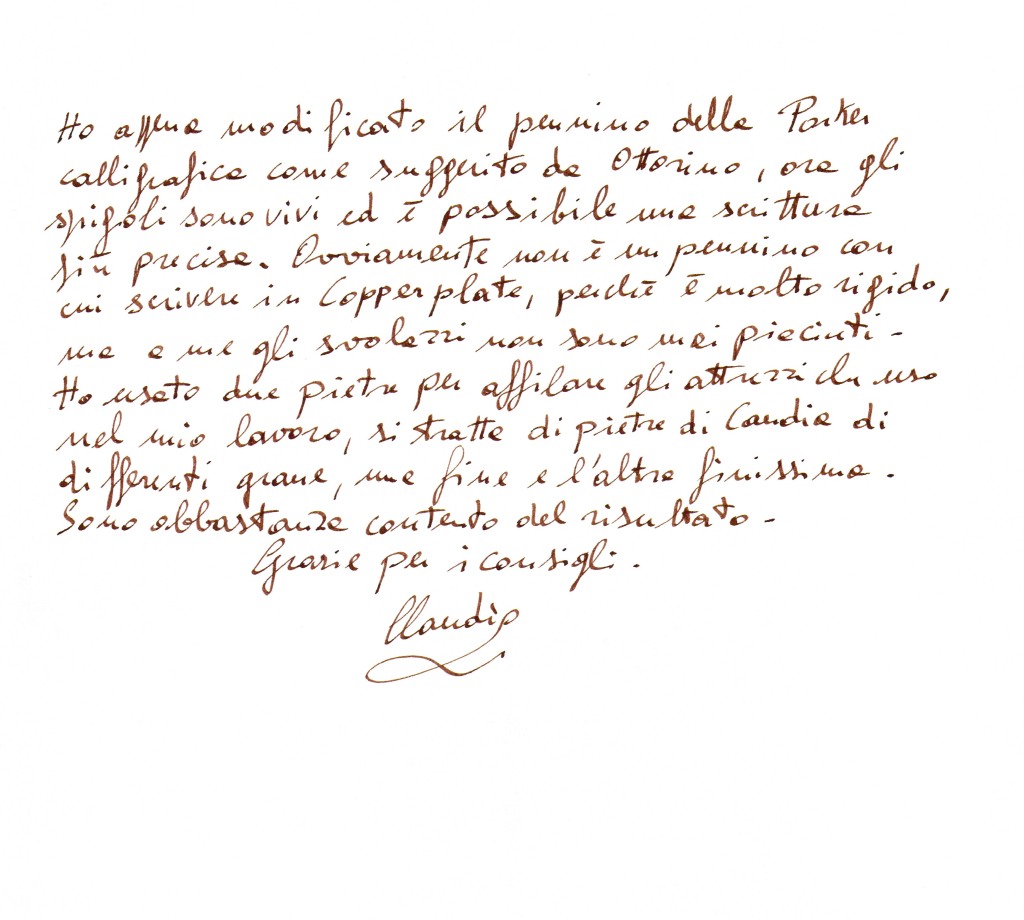 Ho appena modificato il pennino della Parker
calligrafica come suggerito da Ottorino, ora gli
spigoli sono vivi ed è possibile una scrittura
più precisa. Ovviamente non è un pennino con
cui scrivere in Copperplate, perché è molto rigido,
ma a me gli svolazzi non sono mai piaciuti -
Ho usato due pietre per affilare gli attrezzi che uso
nel mio lavoro, si tratta di pietre di Candia di
differenti grane, una fine e l'altra finissima.
Sono abbastanza contento del risultato -
Grazie per i consigli.
Claudio